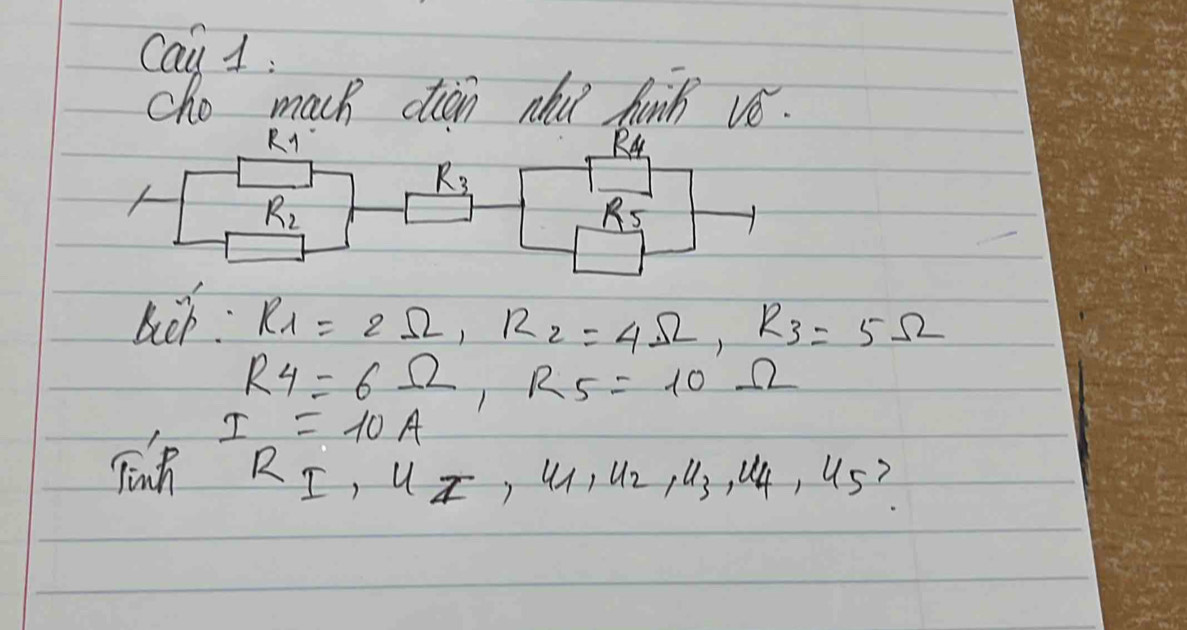 Câu 1:
Cho mạch điện như hình vẽ.
R1 R4
R3
R2 R5
Biết: R1 = 2 Ω, R2 = 4 Ω, R3 = 5 Ω
R4 = 6 Ω, R5 = 10 Ω
I = 10 A
Tính R I, U I, U1, U2, U3, U4, U5?